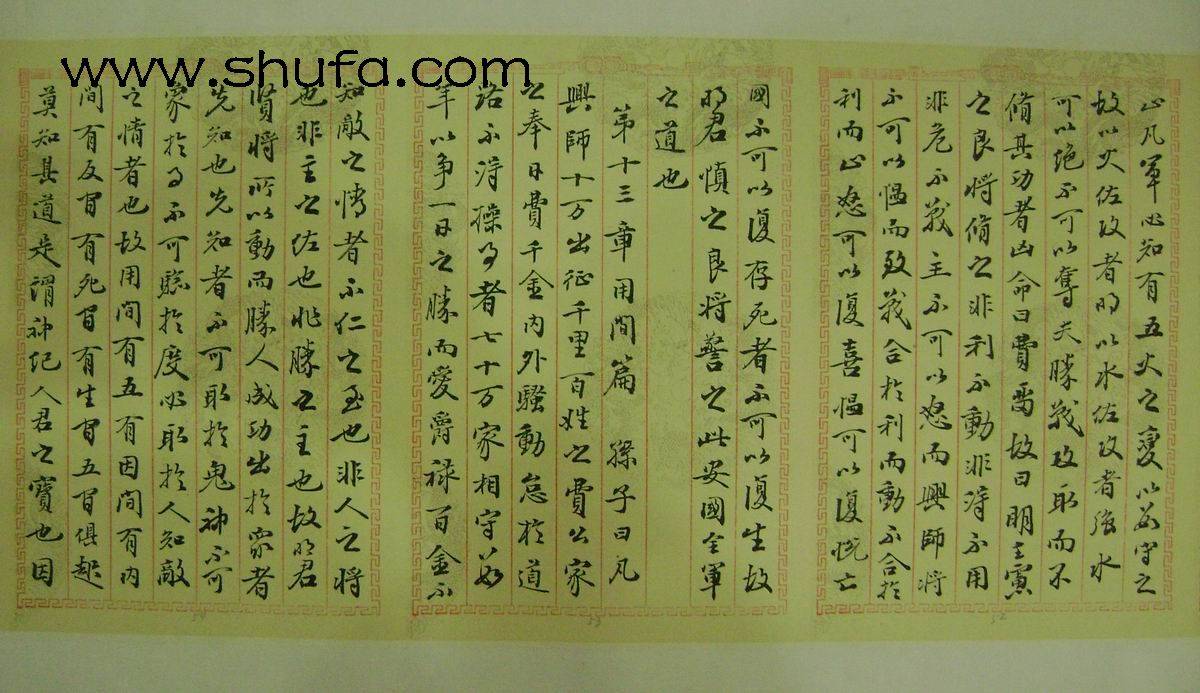 www.shufa.com
止凡軍必知有五火之變以數守之
故以火佐攻者明以水佐攻者強水
可以絕不可以奪夫勝戰攻取而不
脩其功者凶命曰費留故曰明主慮
之良將脩之非利不動非得不用
非危不戰主不可以怒而興師將
不可以慍而致戰合於利而動不合於
利而止怒可以復喜慍可以復悅亡
國不可以復存死者不可以復生故
明君慎之良將警之此安國全軍
之道也
第十三章用間篇 孫子曰凡
興師十万出征千里百姓之費公家
之奉日費千金內外騷動怠於道
路不得操事者七十万家相守數
年以爭一日之勝而愛爵祿百金不
知敵之情者不仁之至也非人之將
也非主之佐也非勝之主也故明君
賢將所以動而勝人成功出於眾者
先知也先知者不可取於鬼神不可
象於事不可驗於度必取於人知敵
之情者也故用間有五有因間有內
間有反間有死間有生間五間俱起
莫知其道是謂神紀人君之寶也因